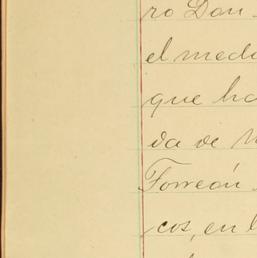 ro Don
el medi
que ha
da de
Torreón
cos, en l